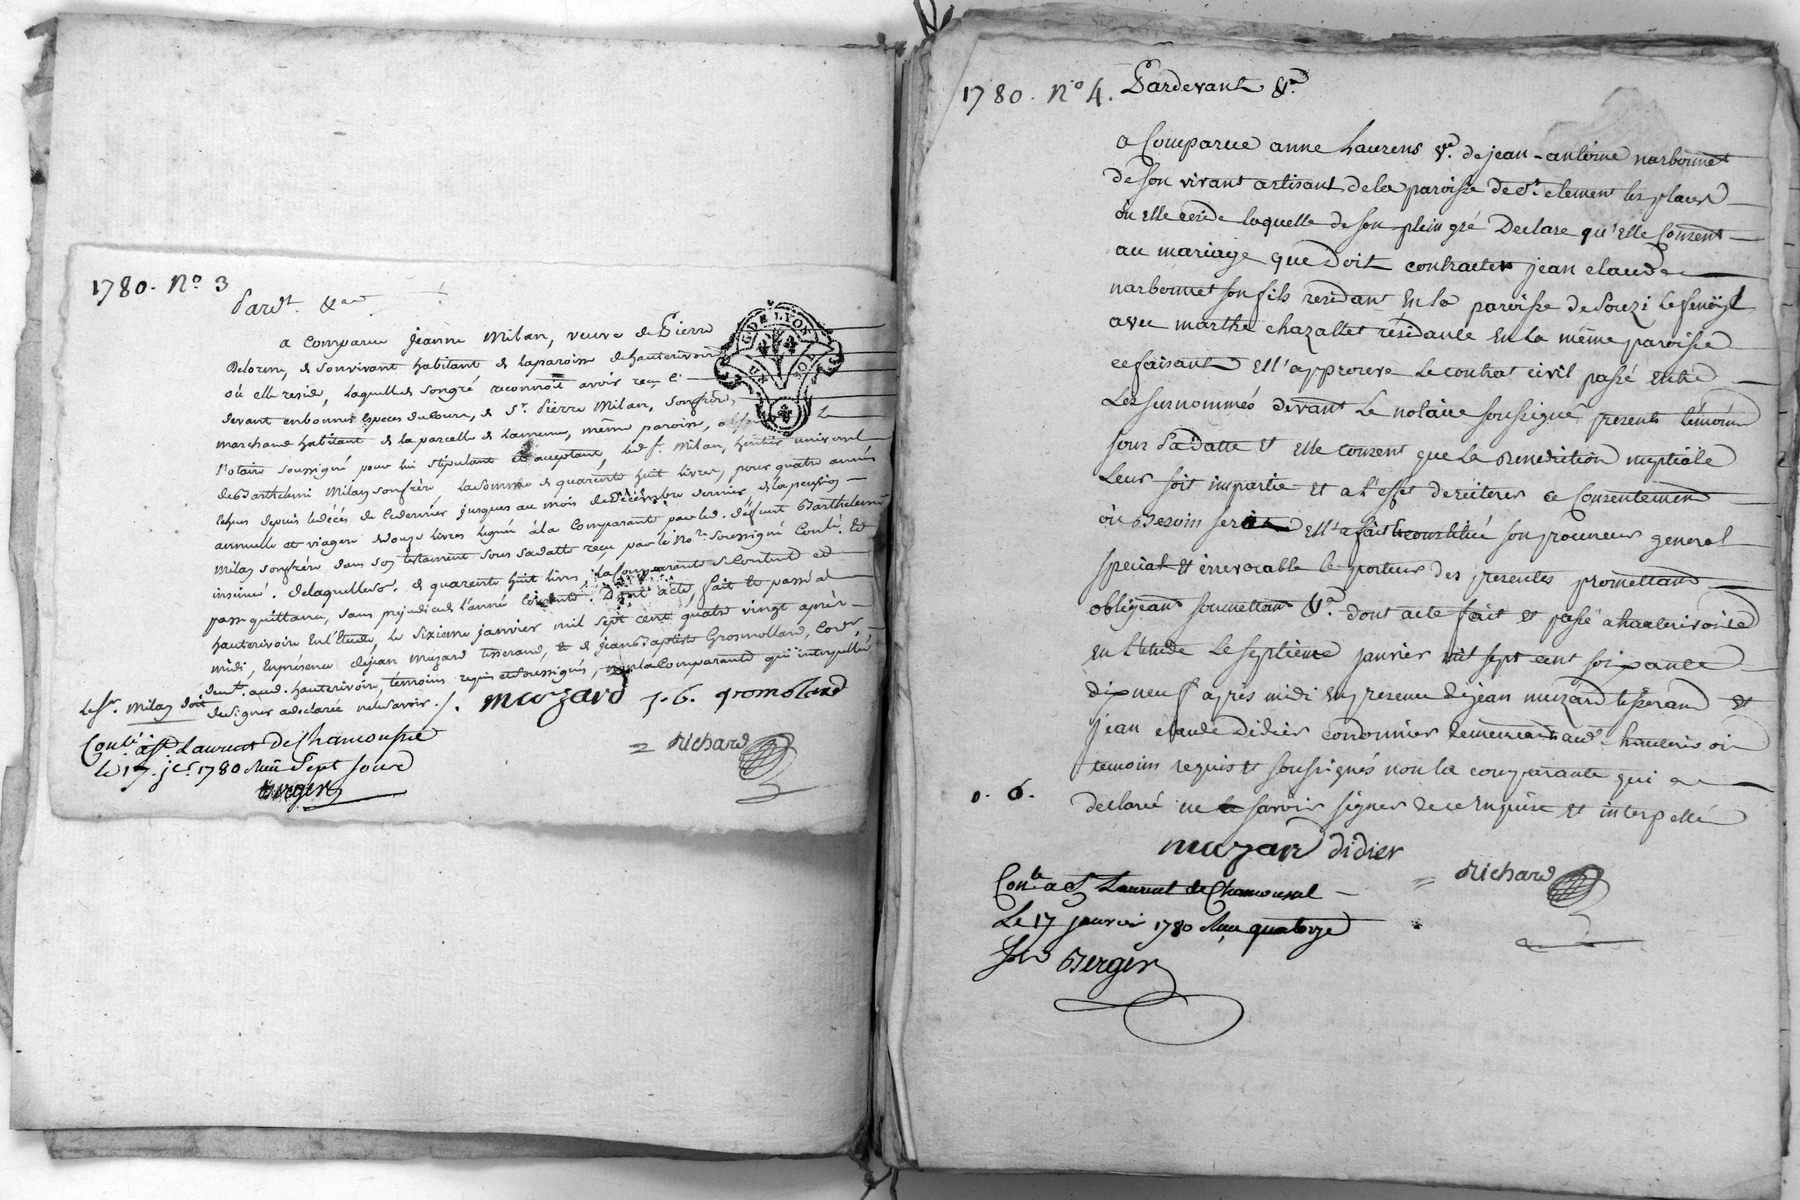 1780. N° 3
Pardt. &a
a comparu jeanne Milan, veuve de Pierre
Delorme, de sonvivant habitant de laparoisse de hauterivoire
où elle reside, laquelle de songré reconnoît avoir reçu ci
devant enbonnes Especes ducours, de Sr. Pierre Milan, sonfrère,
marchand habitant de la parcelle de Lamure, même paroisse, absent Le
Notaire soussigné pour lui stipulant et acceptant, led. Sr. Milan, heritier universel
deBarthelemi Milan sonfrère, la somme de quarente huit livres, pour quatre années
echues depuis ledécès de cedernier jusques au mois deDécembre dernier de lapension
annuelle et viagere dedouze livres leguée àla comparante par led. défunt Barthelemi
Milan sonfrère dans son testament sous sadatte reçu par le No.re soussigné Conlé. et
insinué. delaquelle so. de quarente huit livres, la comparante se contente et
passe quittance, sans prejudice de l'année courante. Dont acte, fait et passé à
hauterivoire En l'Etude, le sixieme janvier mil sept cent quatre vingt après
midi, En presence dejean Muzard tisserand, et de jeanBaptiste Grosmolland, Cord.r,
demt. aud. hauterivoire, témoins requis etsoussignés, non la comparante qui interpellée
designer adeclaré nelesavoir ./.
Le Sr. Milan doit
muzard J. B. gromoland
Conlé. à St. Laurent de Chamousset
le 17. jer. 1780 Reçu Sept sous
Berger
= Richard
1780. N° 4.
Pardevant &a
a Comparue anne Laurens Ve. de jean-antoine narbonnet
de son vivant artisant de la paroisse de St. clement les places
où elle reside laquelle de son plein gré Declare qu'elle Consent
au mariage que doit contracter jean claude
narbonnet son fils residant En la paroisse de Souzi Le
avec marthe chazallet résidante En la même paroisse
ce faisant Ell'approuve Le contrat civil passé entre
Les surnommés devant Le notaire soussigné presents témoins
sous Sa datte et elle consent que La Benediction nuptiale
Leur soit impartie et a l'effet de reiterer ce Consentement
où Besoin seroit Ell'a fait constitué son procureur general
special et irrevocable le porteur des presentes promettant
obligeant soumettant &a. dont acte fait et passé a hauterivoire
en l'etude Le septieme janvier mil sept cent soixante
dix neuf après midi En presence de jean muzard tisserand et
jean claude didier cordonnier demeurant aud. hauterivoire
temoins requis et soussignés non la comparante qui a
declaré ne le savoir signer de ce Enquise et interpellé
0. 6.
muzard didier
= Richard
Conlé a St Laurent de Chamousset
Le 17 janvier 1780 Reçu quatorze
sols Berger
G. DE LYON
UN SOL